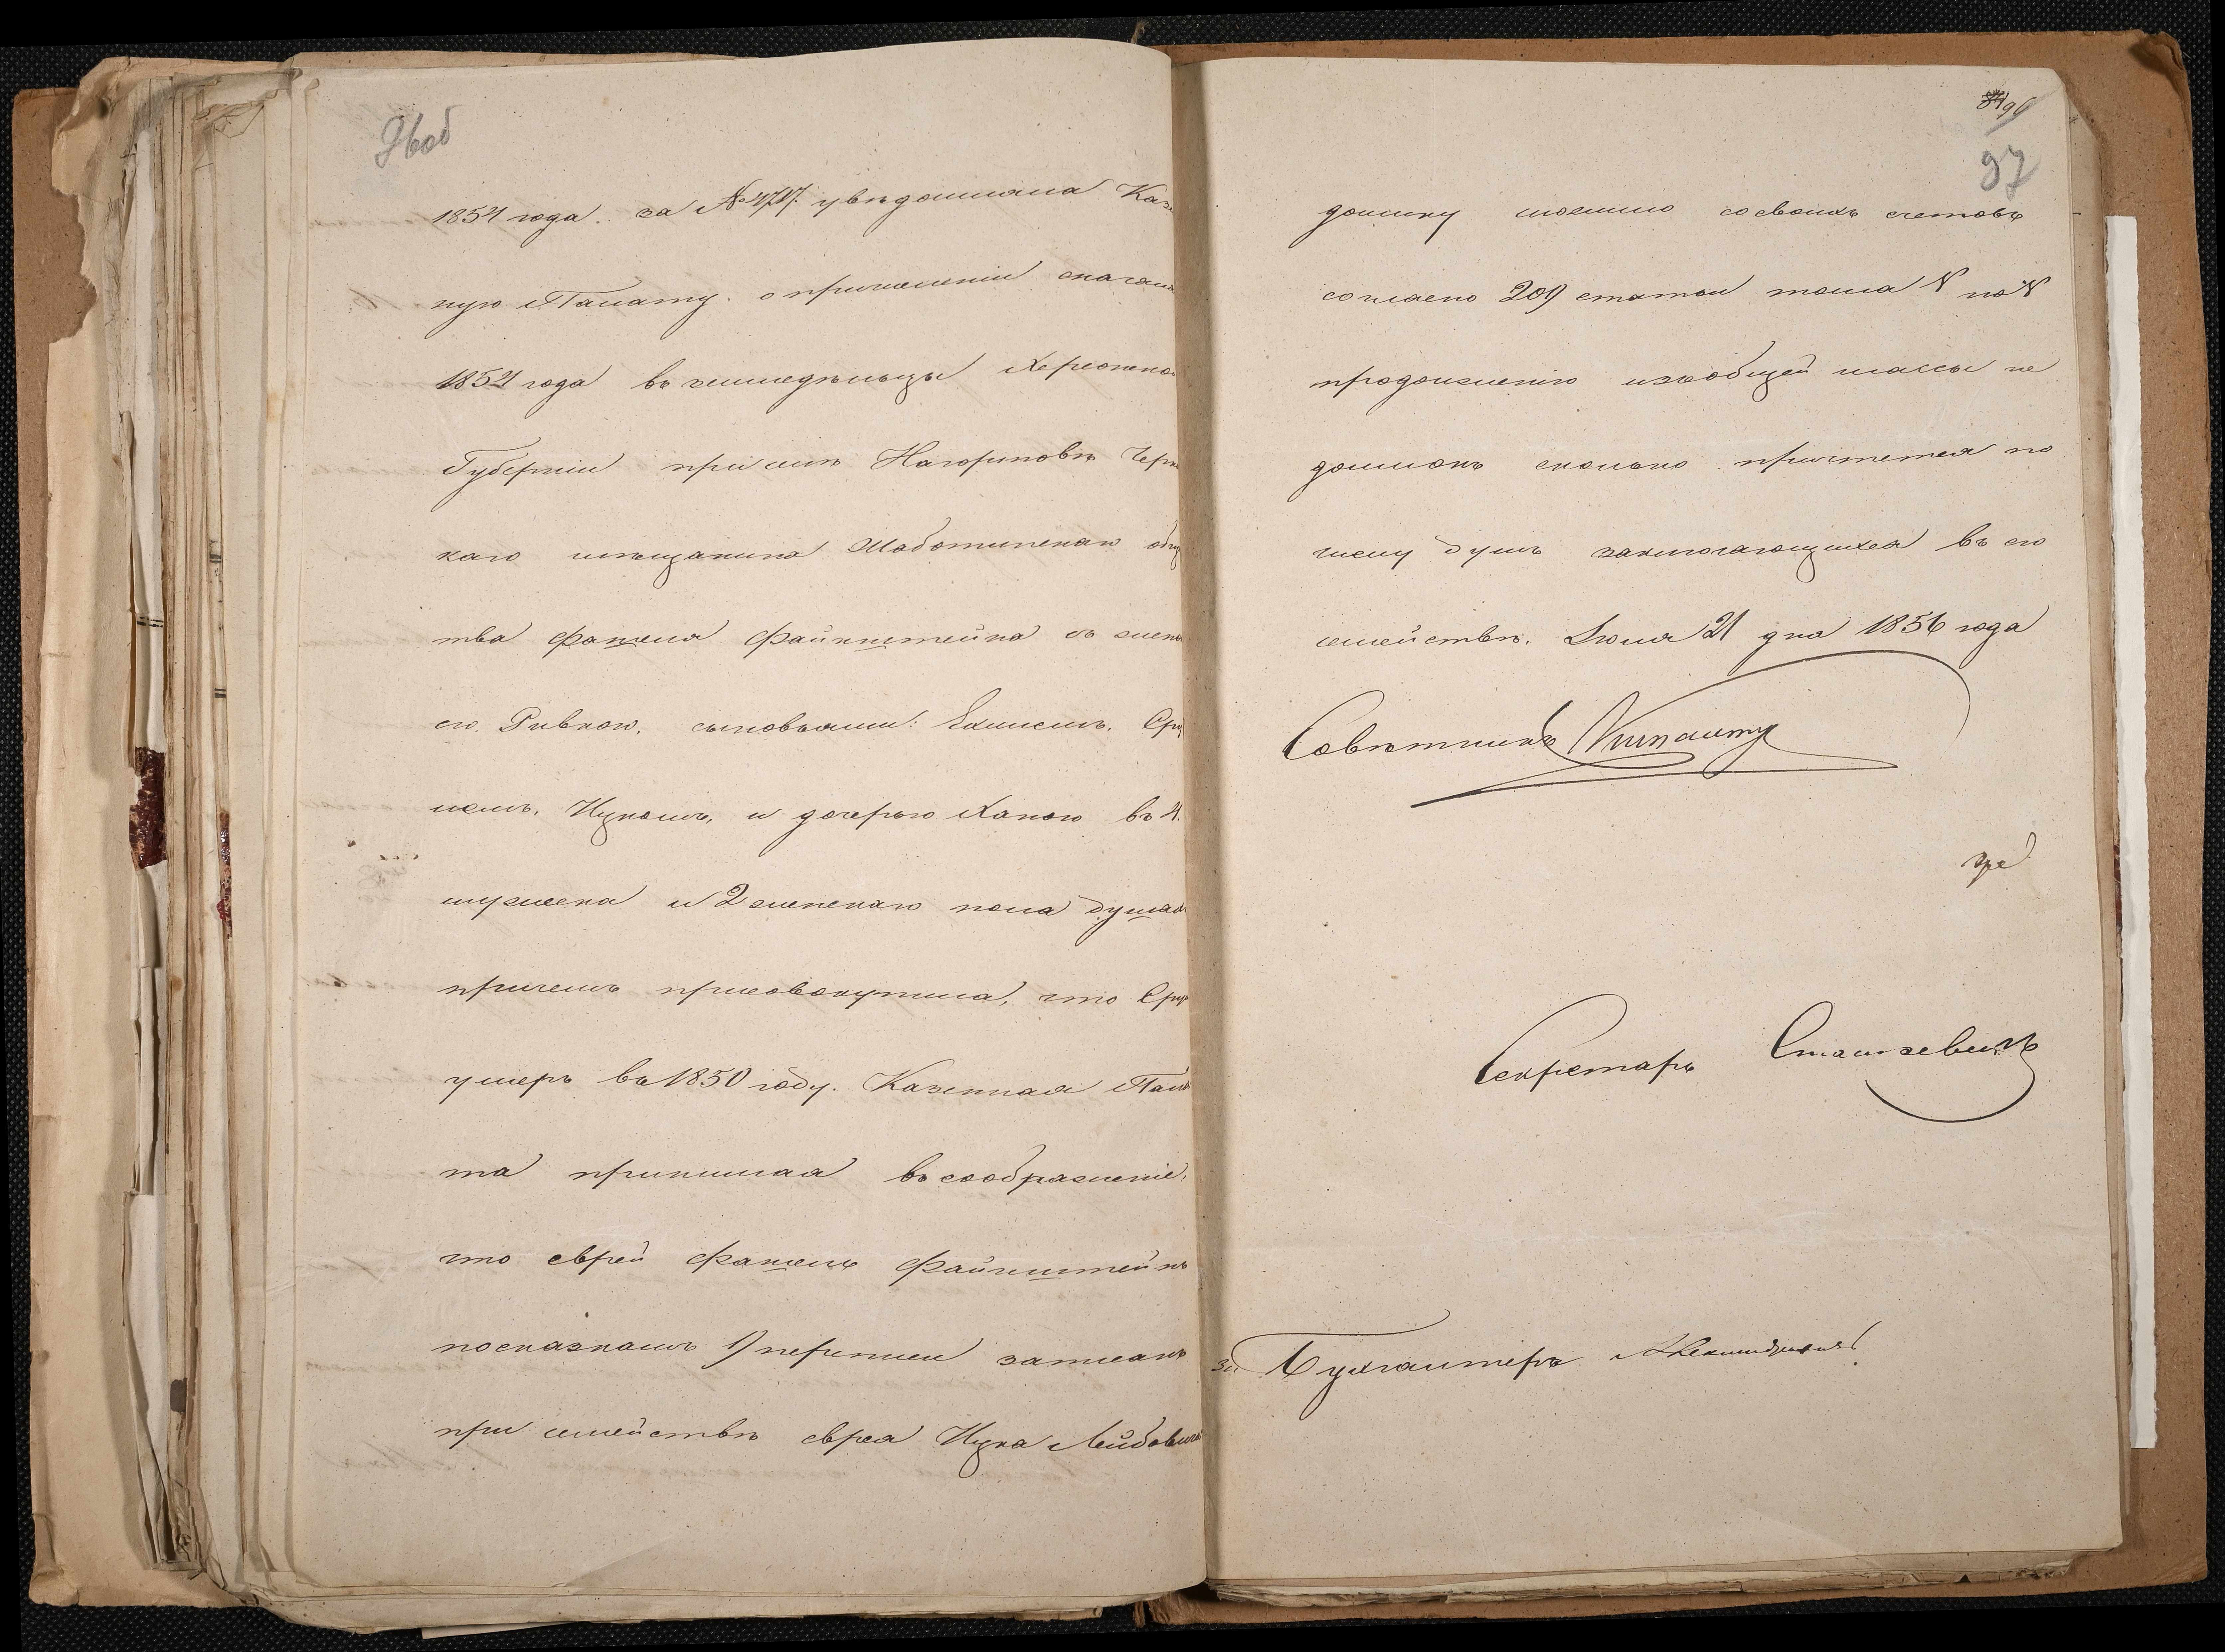 96об
1854 года за № 4717. увѣдомляла Каз
ную Палату. о причисленіи сначала
1854 года въ земледѣльцы Херсонско
Губерніи при сил. Нагортовѣ Черк
каго мѣщанина Шаботинскаго общ
тва Фашеля Файнштейна съ жен
его Ривкою, сыновьями: Хаимомъ, Сру
лемъ, Ицкомъ, и дочерью Ханою въ 4.
мужеска и 2 женскаго пола душах
причемъ присовокупила, что Сру
умеръ въ 1850 году. Казенная Пала
та принимая въ соображеніе,
что еврей Фашель Файнштейнъ
по сказкамъ 9 переписи записанъ
при семействѣ еврея Ицка Лейбовича
96
97
доимку сложило со своихъ счетовъ
согласно 209 статьи тома V по IV
продолженію изъ общей массы не
доимокъ сколько причтется по
числу душъ заключающихся въ его
семействѣ. Іюля 21 дня 1856 года
Совѣтникъ
Секретарь Сташкевичъ
За Бухгалтера